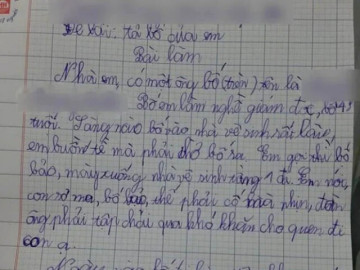 Đề bài: tả bố của em
Bài làm
Nhà em, có một ông bố (trần) tên là
Bố em làm nghề giám đốc,
tuổi. Sáng nào bố vào nhà vệ sinh rất lâu,
em buồn tè mà phải chờ bố ra. Em gọi thì bố
bảo, mày xuống nhà vệ sinh tầng 1 đi. Em nói,
con sợ ma, bố bảo, thế phải cố mà nhịn, đàn
ông phải tập chịu qua khó khăn cho quen đi
con ạ.